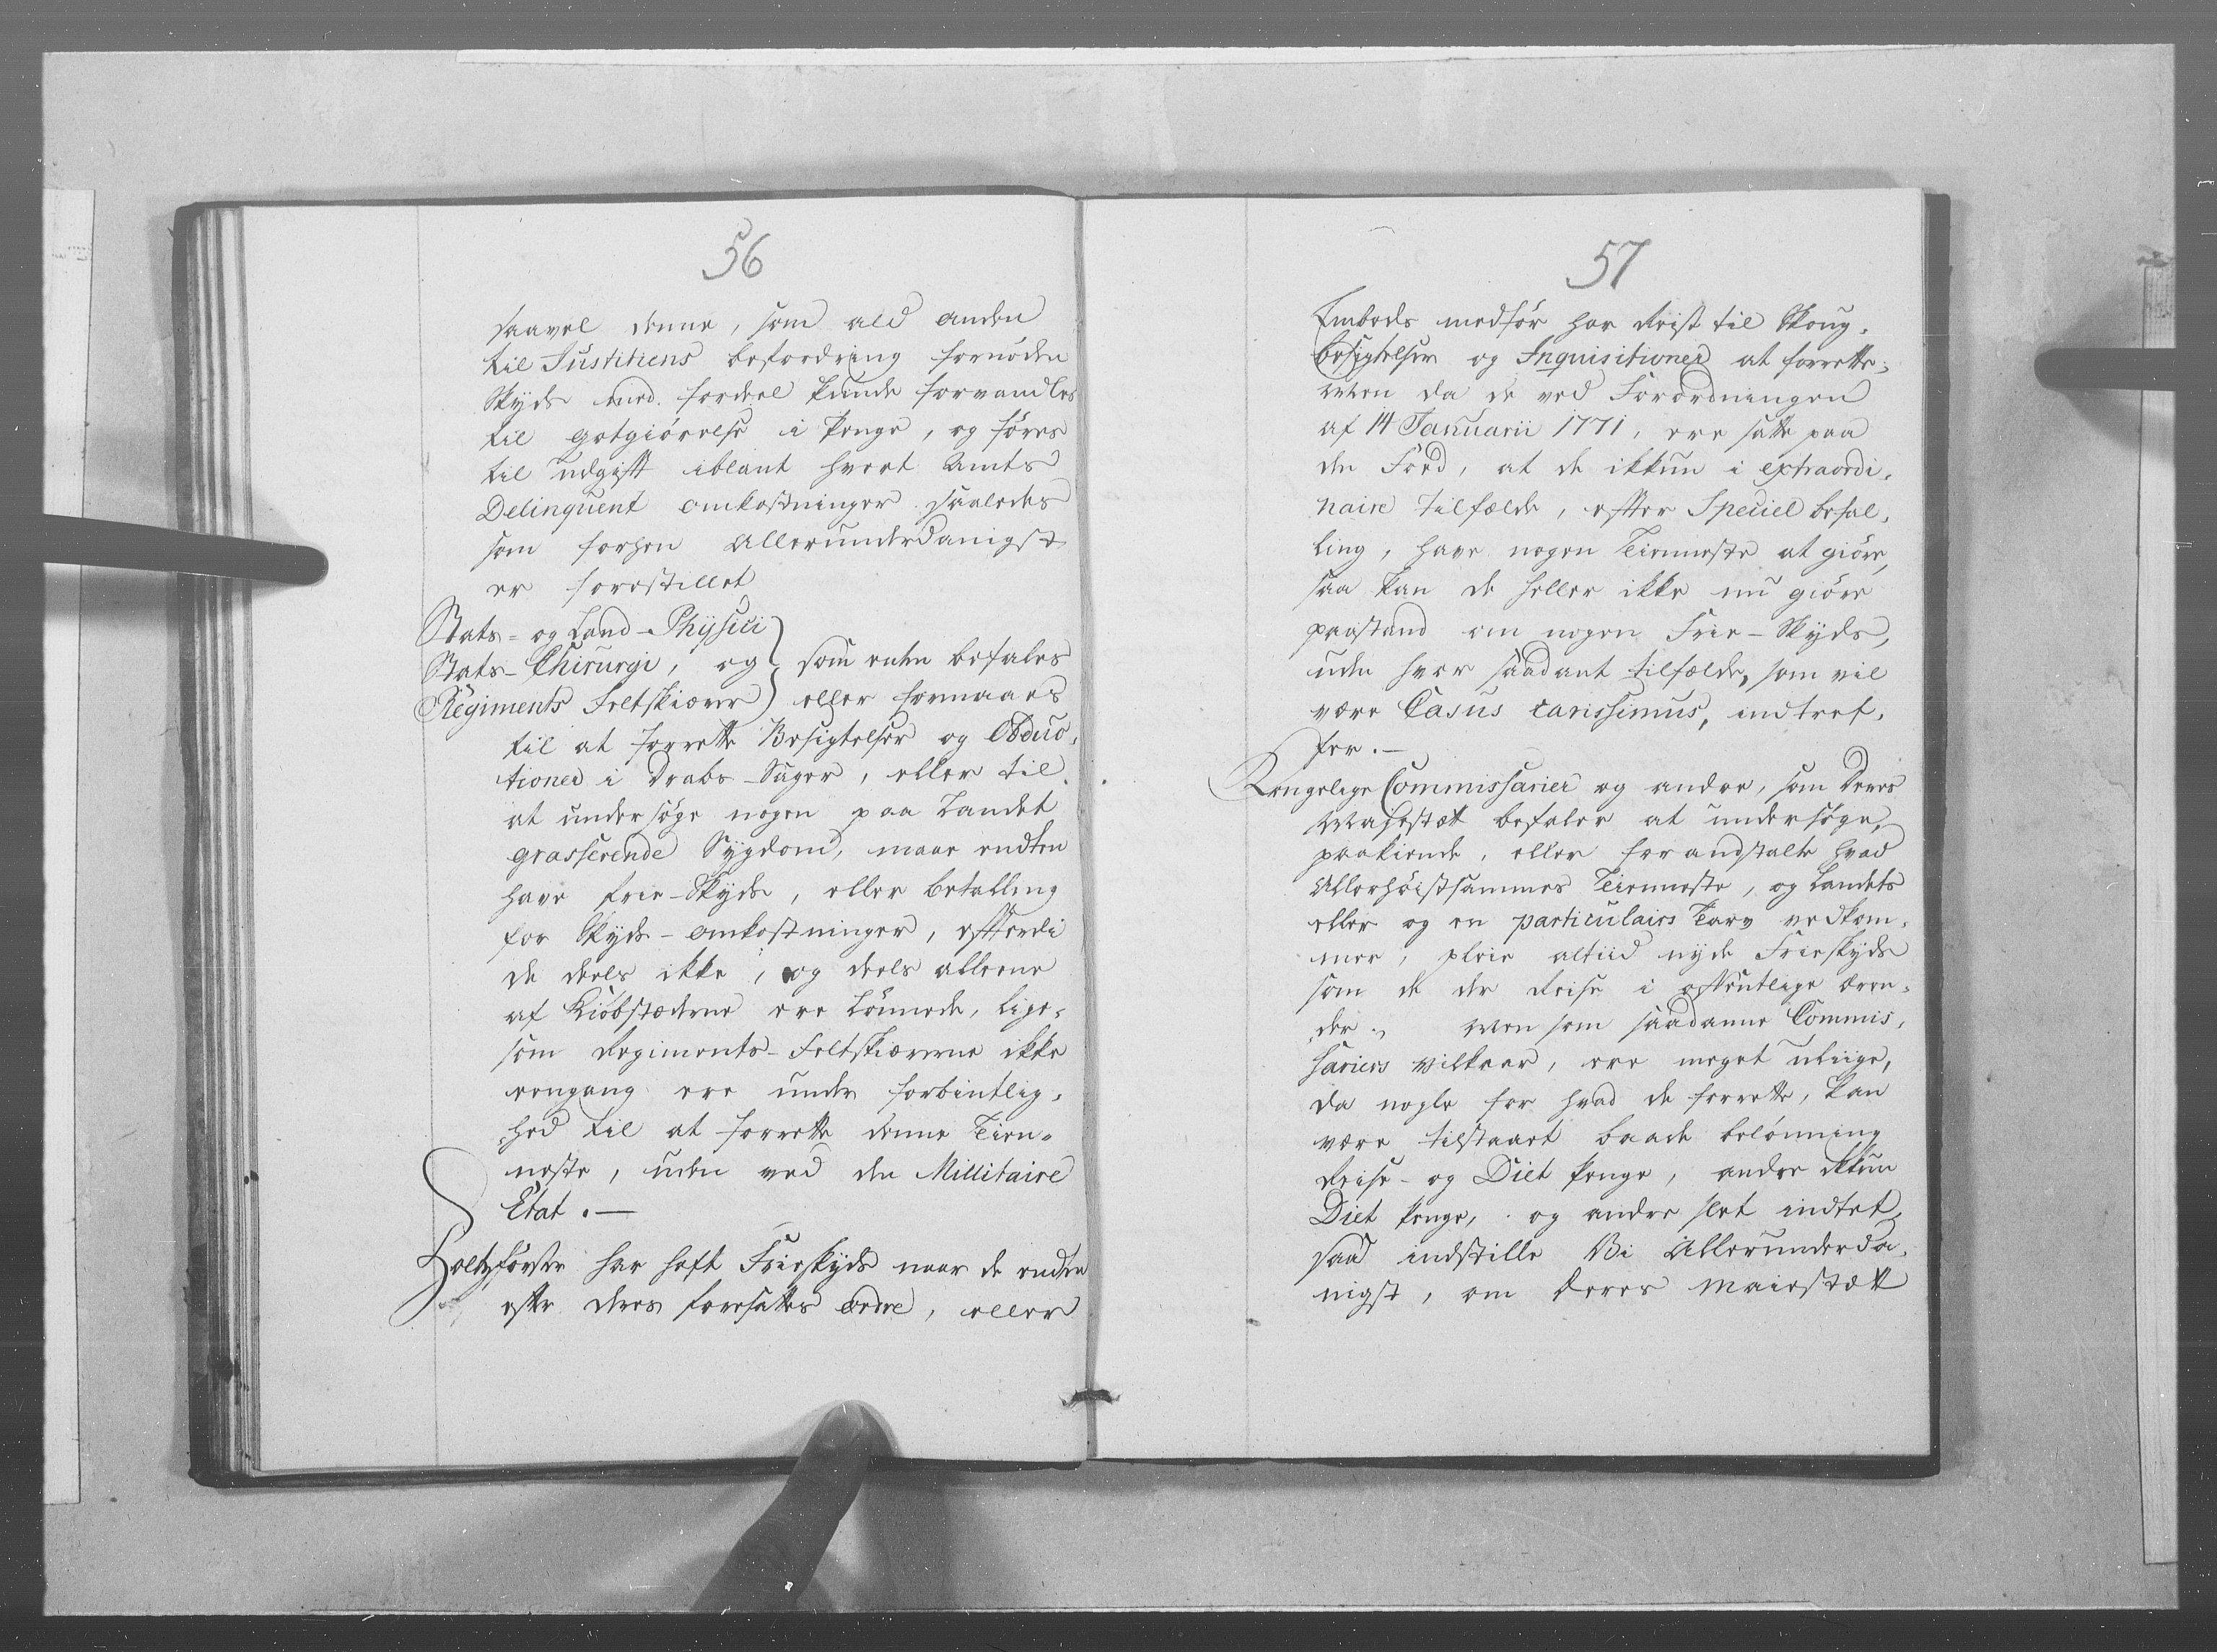 56
saavel denne, som ald anden
til Justitiens befordring fornøden
Skyds med fordeel kunde forvandles
til gotgiørelse i Penge, og føres
til udgift iblant hvert Amts
Delinquent omkostninger saaledes
som forhen Allerunderdanigst
er forestillet
Stats- og Land-Physici
Stats-Chirurgi, og som enten befales
Regiments Feltskiærer eller formaaes
til at forrette Besigtelser og Obduc-
tioner i Drabs-Sager, eller til
at undersøge nogen paa Landet
grasserende Sygdom, maae endten
have frie-Skyds, eller betalling
for Skyds-omkostninger, efterdi
de deels ikke, og deels alleene
af Kiøbstæderne ere Lønnede, lige-
som Regiments-Feltskiærerne ikke
eengang ere under forbintlig-
hed til at forrette denne Tien-
neste, uden ved den Millitaire
Etat.-
Holtzførster har haft Frieskyds naar de endten
efter deres foresattes ordre, eller
57
Embeds medfør har Reist til Skoug-
besigtelser og Inquisitioner at forrette;
Men da de ved Forordningen
af 14 Januarii 1771, ere satte paa
den Fod, at de ikkun i extraordi-
naire tilfælde, efter Speciel befal-
ling, have nogen Tienneste at giøre,
saa kan de heller ikke nu giøre
paastand om nogen Frie-Skyds,
uden hvor saadant tilfælde, som vil
være Casus rarissimus, indtref-
fer.-
Kongelige Commissarier og andre, som Deres
Majestæt befaler at undersøge,
paakiende, eller foranstalte hvad
Allerhøistsammes Tienneste, og Landets
eller og en particulairs Tarv vedkom-
mer, pleie altiid nyde Frieskyds
som de der Reise i offentlige æren-
der. Men som saadanne Commis-
sariers Vilkaar, ere meget uliige,
da nogle for hvad de forrette, kan
være tilstaaet baade belønning
Reise- og Diet Penge, andre ikkun
Diet Penge, og andre slet indtet,
saa indstille Vi Allerunderda-
nigst, om Deres Maiestæt